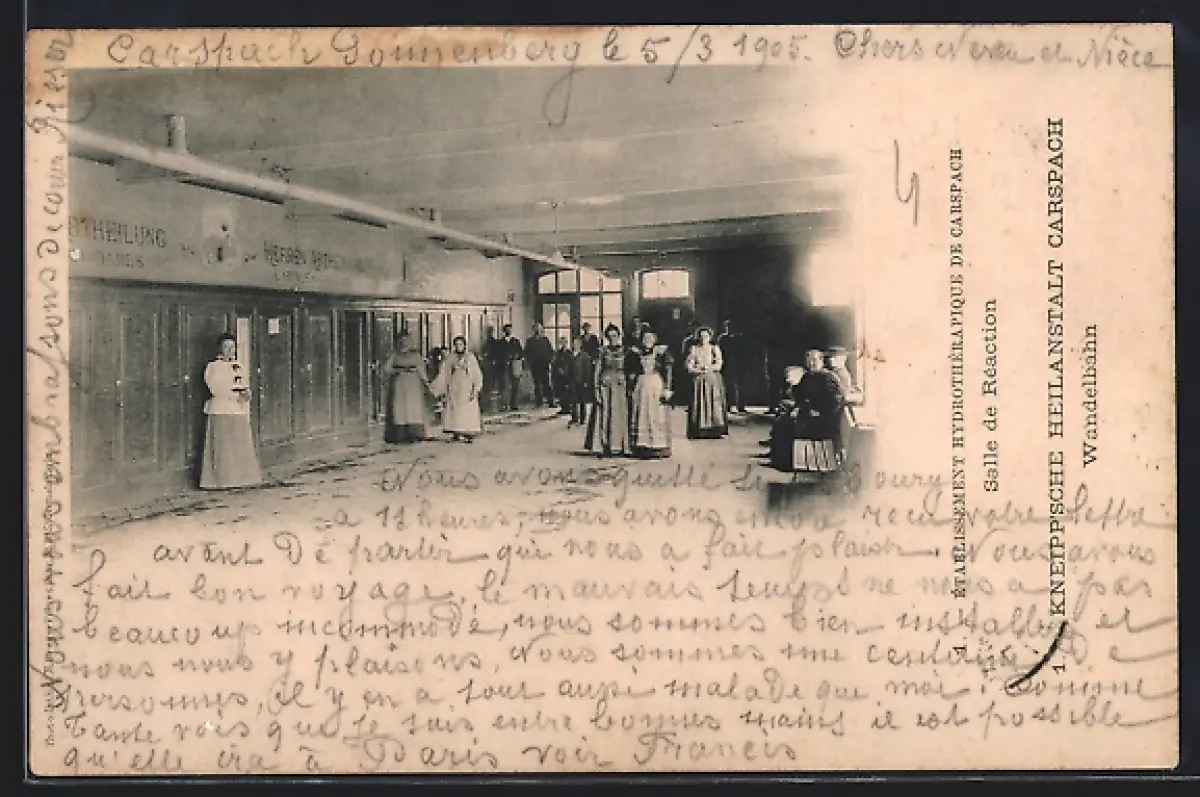 Carspach Sonnenberg le 5/3 1905. Chers Neveu et Nièce
4
ABTHEILUNG
DAMES
HERREN ABTHEILUNG
1. ÉTABLISSEMENT HYDROTHÉRAPIQUE DE CARSPACH
Salle de Réaction
1. KNEIPPSCHE HEILANSTALT CARSPACH
Wandelbahn
Nous avons quitté
a 11 heures, nous avons encore recu votre lettre
avant De partir qui nous a fait plaisir. Nous avons
fait bon voyage, le mauvais temps ne nous a pas
beaucoup incommodé, nous sommes bien installer et
nous nous y plaisons, Nous sommes une centaine De
personnes, il y en a tout aussi malade que moi. Comme
Tante vois que je suis entre bonnes mains il est possible
qu'elle ira à Paris voir Francis
Nous vous embrassons De coeur